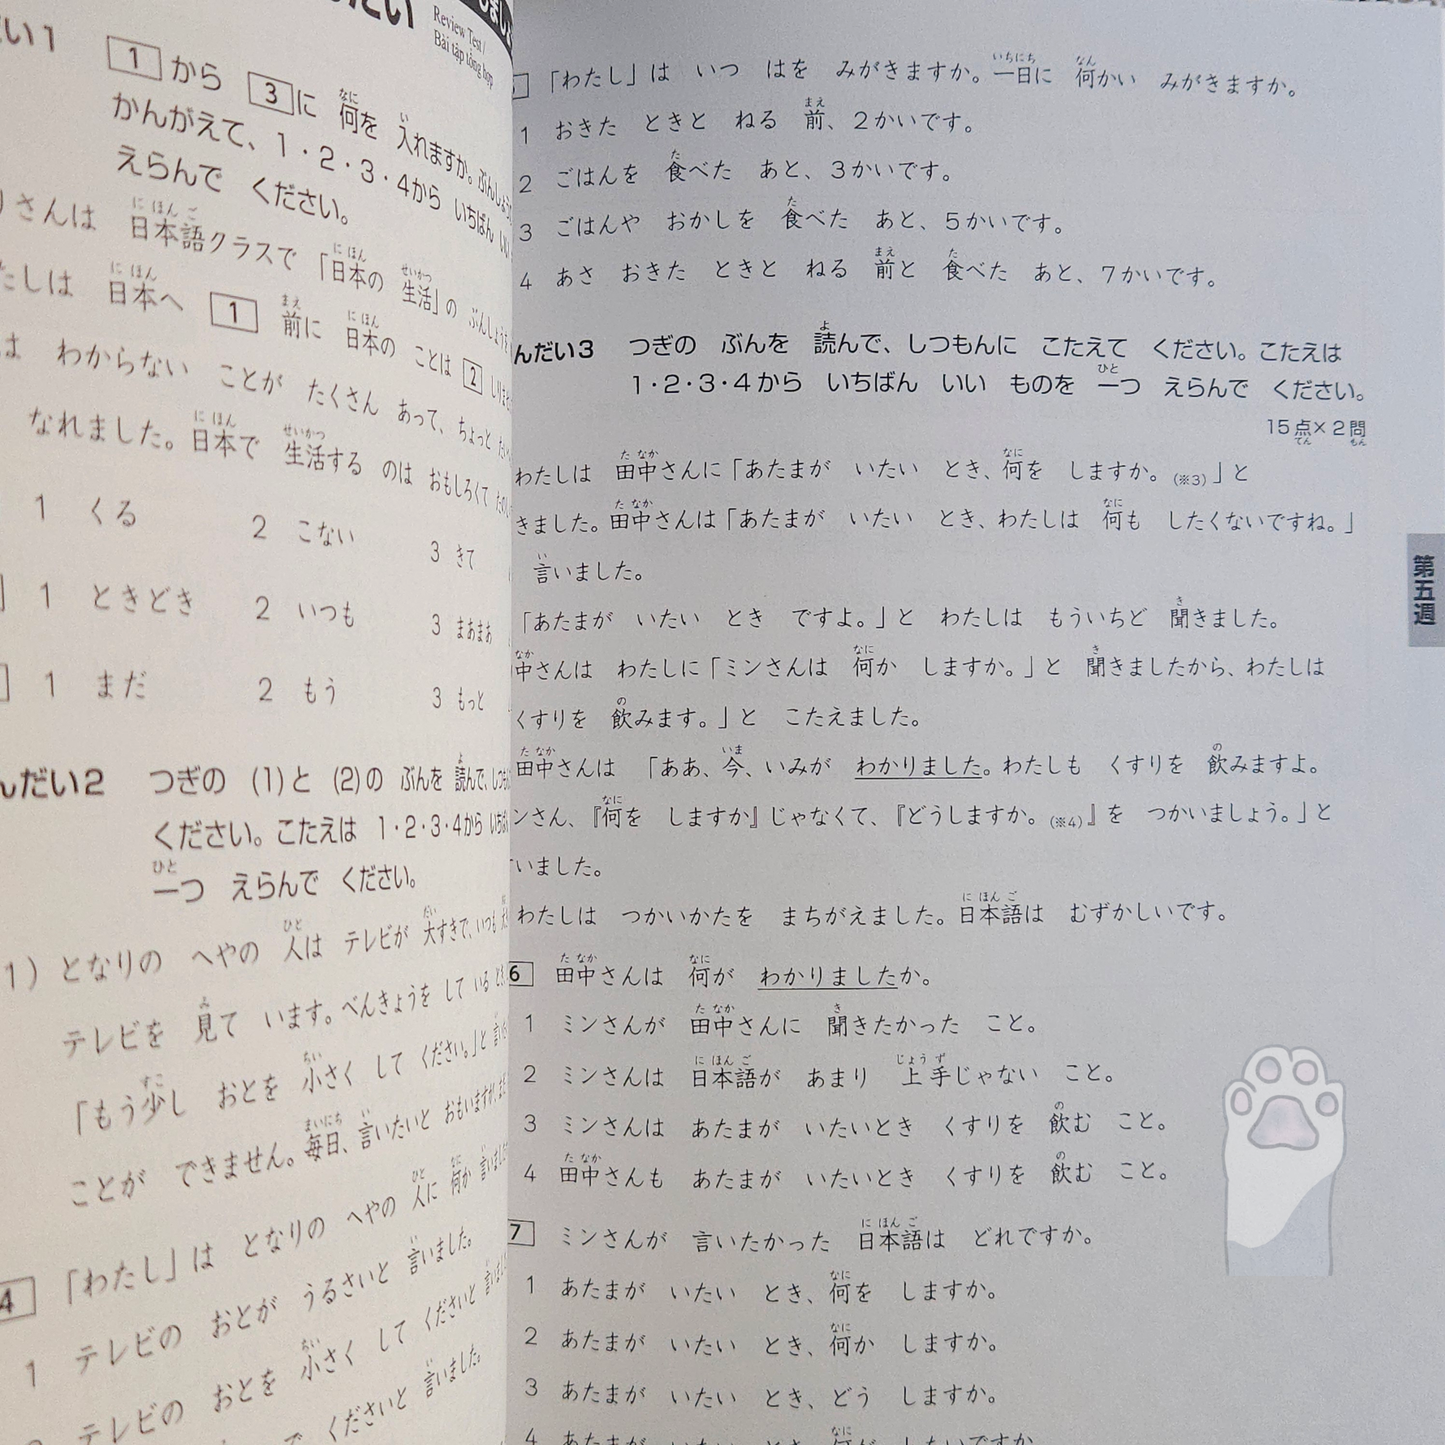 Review Test /
Bài tập tổng hợp
1 から 3 に 何を 入れますか。ぶんしょう
かんがえて、1・2・3・4から いちばん いい
えらんで ください。
さんは 日本語クラスで 「日本の 生活」の ぶんしょうを
たしは 日本へ 1 前に 日本の ことは 2 しりませ
は わからない ことが たくさん あって、ちょっと
なれました。日本で 生活する のは おもしろくて
1 くる 2 こない 3 きて
1 ときどき 2 いつも 3 まあまあ
1 まだ 2 もう 3 もっと
んだい2 つぎの (1)と (2)の ぶんを 読んで、しつも
ください。こたえは 1・2・3・4から いちば
一つ えらんで ください。
1) となりの へやの 人は テレビが 大すきで、いつも
テレビを 見て います。べんきょうを して いる とき
「もう少し おとを 小さく して ください。」と 言い
ことが できません。毎日、言いたいと おもいますが、
4 「わたし」は となりの へやの 人に 何か 言いました
1 テレビの おとが うるさいと 言いました。
テレビの おとを 小さく して くださいと 言い
くださいと 言いました。
「わたし」は いつ はを みがきますか。一日に 何かい みがきますか。
1 おきた ときと ねる 前、2かいです。
2 ごはんを 食べた あと、3かいです。
3 ごはんや おかしを 食べた あと、5かいです。
4 あさ おきた ときと ねる 前と 食べた あと、7かいです。
んだい3 つぎの ぶんを 読んで、しつもんに こたえて ください。こたえは
1・2・3・4から いちばん いい ものを 一つ えらんで ください。
15点×2問
わたしは 田中さんに「あたまが いたい とき、何を しますか。(※3)」と
きました。田中さんは「あたまが いたい とき、わたしは 何も したくないですね。」
言いました。
「あたまが いたい とき ですよ。」と わたしは もういちど 聞きました。
中さんは わたしに「ミンさんは 何か しますか。」と 聞きましたから、わたしは
くすりを 飲みます。」と こたえました。
田中さんは 「ああ、今、いみが わかりました。わたしも くすりを 飲みますよ。
ンさん、『何を しますか』じゃなくて、『どうしますか。(※4)』を つかいましょう。」と
いました。
わたしは つかいかたを まちがえました。日本語は むずかしいです。
6 田中さんは 何が わかりましたか。
1 ミンさんが 田中さんに 聞きたかった こと。
2 ミンさんは 日本語が あまり 上手じゃない こと。
3 ミンさんは あたまが いたいとき くすりを 飲む こと。
4 田中さんも あたまが いたいとき くすりを 飲む こと。
7 ミンさんが 言いたかった 日本語は どれですか。
1 あたまが いたい とき、何を しますか。
2 あたまが いたい とき、何か しますか。
3 あたまが いたい とき、どう しますか。
4 あたまが いたい とき、何が したいですか
第五週